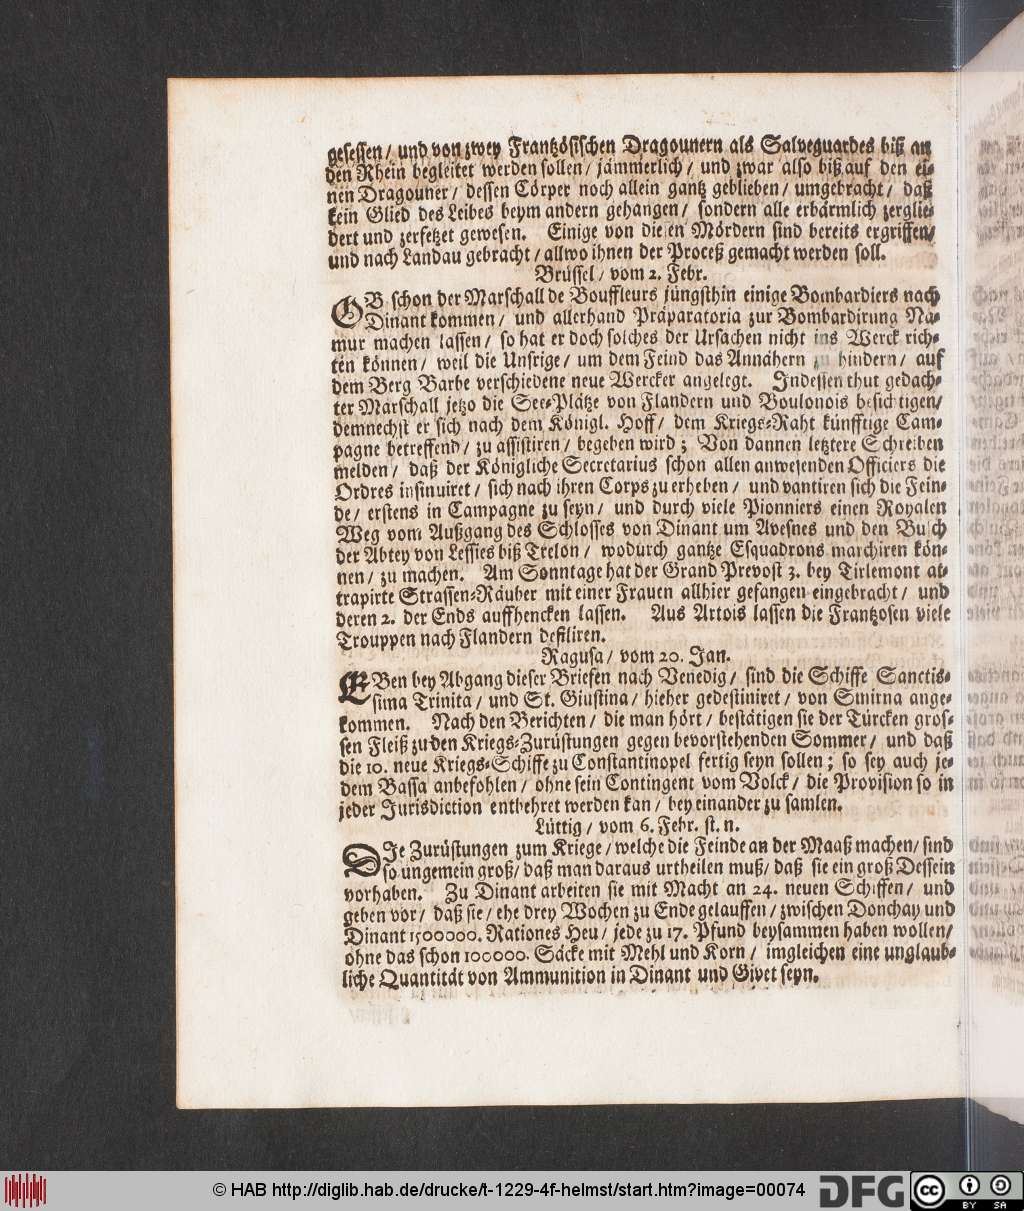 gesessen / und von zwey Frantzösischen Dragounern als Salveguardes biß an
den Rhein begleitet werden sollen / jämmerlich / und zwar also biß auf den ei-
nen Dragouner / dessen Cörper noch allein gantz geblieben / umgebracht / daß
kein Glied des Leibes beym andern gehangen / sondern alle erbärmlich zerglie-
dert und zerfetzet gewesen. Einige von diesen Mördern sind bereits ergriffen/
und nach Landau gebracht / allwo ihnen der Proceß gemacht werden soll.
Brüssel / vom 2. Febr.
OB schon der Marschall de Bouffleurs jüngsthin einige Bombardiers nach
Dinant kommen / und allerhand Präparatoria zur Bombardirung Na-
mur machen lassen / so hat er doch solches der Ursachen nicht ins Werck rich-
ten können / weil die Unsrige / um dem Feind das Annähern zu hindern / auf
dem Berg Barbe verschiedene neue Wercker angelegt. Indessen thut gedach-
ter Marschall jetzo die See-Plätze von Flandern und Boulonois besichtigen/
demnechst er sich nach dem Königl. Hoff / dem Kriegs-Raht künfftige Cam-
pagne betreffend / zu assistiren / begeben wird ; Von dannen letztere Schreiben
melden / daß der Königliche Secretarius schon allen anwesenden Officiers die
Ordres insinuiret / sich nach ihren Corps zu erheben / und vantiren sich die Fein-
de / erstens in Campagne zu seyn / und durch viele Pionniers einen Royalen
Weg vom Außgang des Schlosses von Dinant um Avesnes und den Busch
der Abtey von Lessies biß Trelon / wodurch gantze Esquadrons marchiren kön-
nen / zu machen. Am Sonntage hat der Grand Prevost 3. bey Tirlemont at-
trapirte Strassen-Räuber mit einer Frauen allhier gefangen eingebracht / und
deren 2. der Ends auffhencken lassen. Aus Artois lassen die Frantzosen viele
Trouppen nach Flandern defiliren.
Ragusa / vom 20. Jan.
EBen bey Abgang dieser Briefen nach Venedig / sind die Schiffe Sanctis-
sima Trinita / und St. Giustina / hieher gedestiniret / von Smirna ange-
kommen. Nach den Berichten / die man hört / bestätigen sie der Türcken gros-
sen Fleiß zu den Kriegs-Zurüstungen gegen bevorstehenden Sommer / und daß
die 10. neue Kriegs-Schiffe zu Constantinopel fertig seyn sollen ; so sey auch je-
dem Bassa anbefohlen / ohne sein Contingent vom Volck / die Provision so in
jeder Jurisdiction entbehret werden kan / bey einander zu samlen.
Lüttig / vom 6. Febr. st. n.
DIe Zurüstungen zum Kriege / welche die Feinde an der Maaß machen / sind
so ungemein groß / daß man daraus urtheilen muß / daß sie ein groß Dessein
vorhaben. Zu Dinant arbeiten sie mit Macht an 24. neuen Schiffen / und
geben vor / daß sie / ehe drey Wochen zu Ende gelauffen / zwischen Donchay und
Dinant 1500000. Rationes Heu / jede zu 17. Pfund beysammen haben wollen/
ohne das schon 100000. Säcke mit Mehl und Korn / imgleichen eine unglaub-
liche Quantität von Ammunition in Dinant und Givet seyn.
© HAB http://diglib.hab.de/drucke/t-1229-4f-helmst/start.htm?image=00074
DFG
cc
BY SA